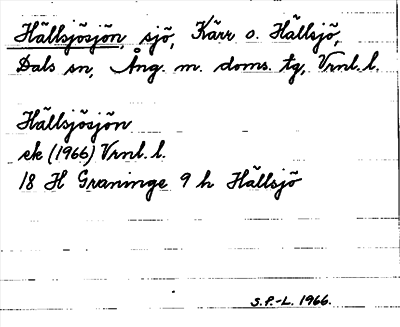 Hällsjösjön, sjö, Kärr o. Hällsjö,
Dals sn, Ång. m. doms. tg, Vrnl. l.
Hällsjösjön
ek (1966) Vrnl. l.
18 H Graninge 9 h Hällsjö
S.P.-L. 1966.